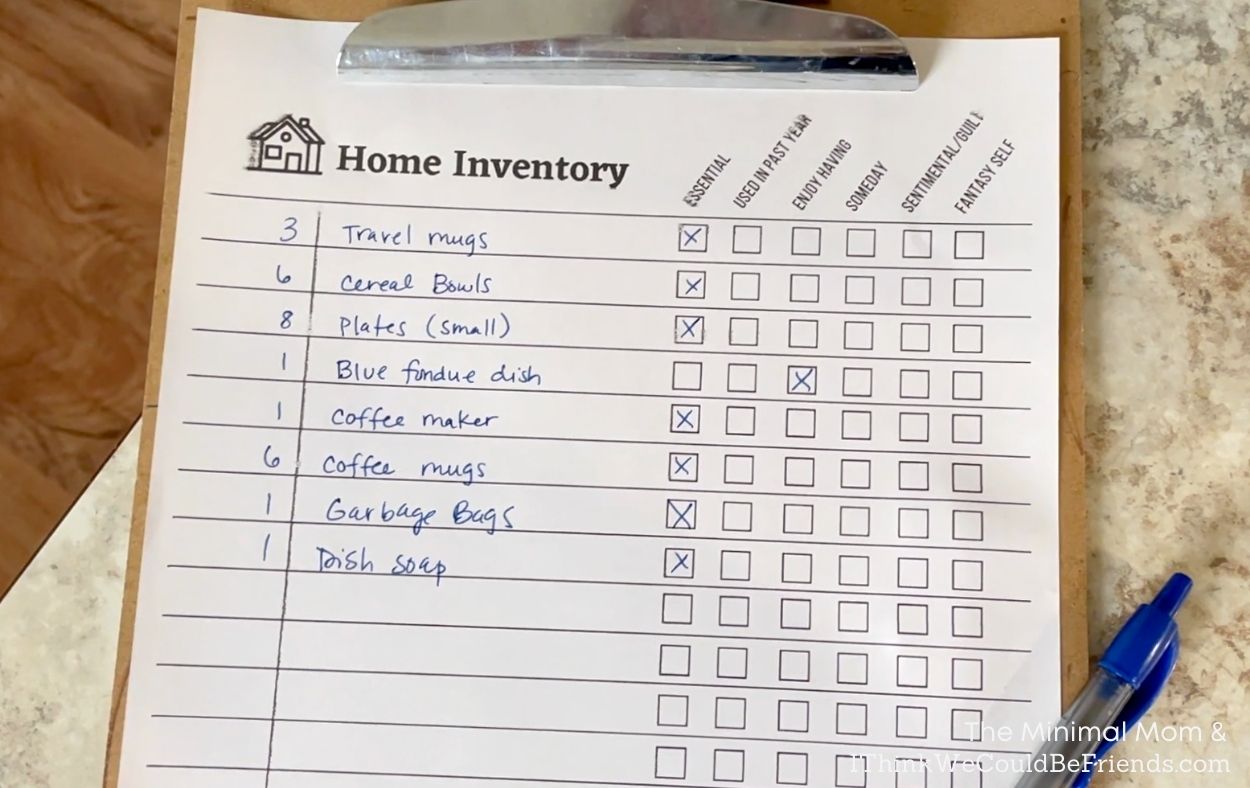 Home Inventory
ESSENTIAL
USED IN PAST YEAR
ENJOY HAVING
SOMEDAY
SENTIMENTAL/GUILT
FANTASY SELF
3 Travel mugs
6 Cereal Bowls
8 Plates (small)
1 Blue fondue dish
1 Coffee maker
6 Coffee mugs
1 Garbage Bags
1 Dish soap
The Minimal Mom &
IThinkWeCouldBeFriends.com